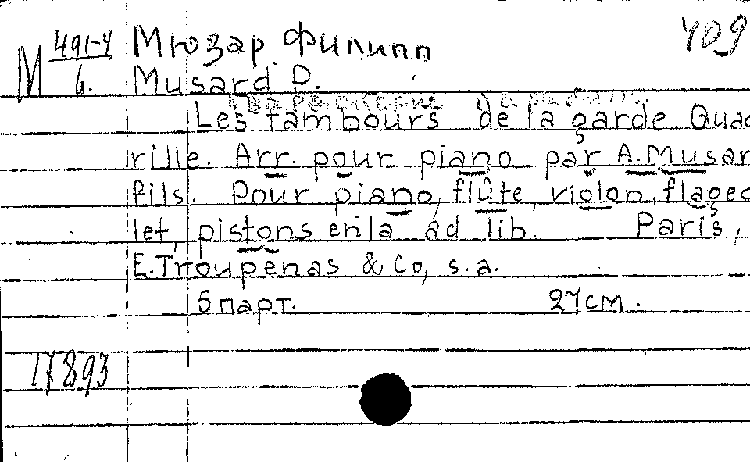 409
М 491-4
6.
Мюзар, Филипп
Musard P.
Les tambours de la garde Quad
rille. Arr. pour piano par A. Musar
fils. Pour piano, flûte, violon, flageo
let, pistons en la ad lib. Paris,
E. Troupenas & Co, s.a.
5 парт. 27 см.
17893